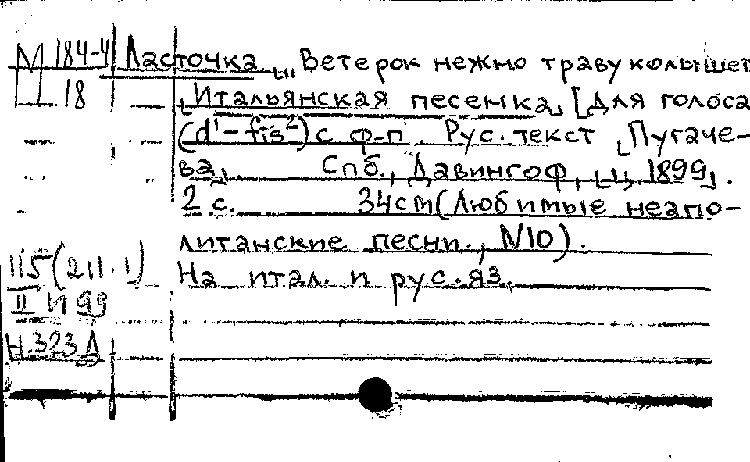 М 184-4 Ласточка „Ветерок нежно траву колышет
18 „Итальянская песенка„ [Для голоса
(d¹-fis²) с ф-п. Рус. текст Пугаче-
ва. Спб., Давингоф, ц. 1899.
2 с. 34см (Любимые неапо-
литанские песни., N10).
115(211.1) На итал. и рус. яз.
II И 99
Н 323 Д